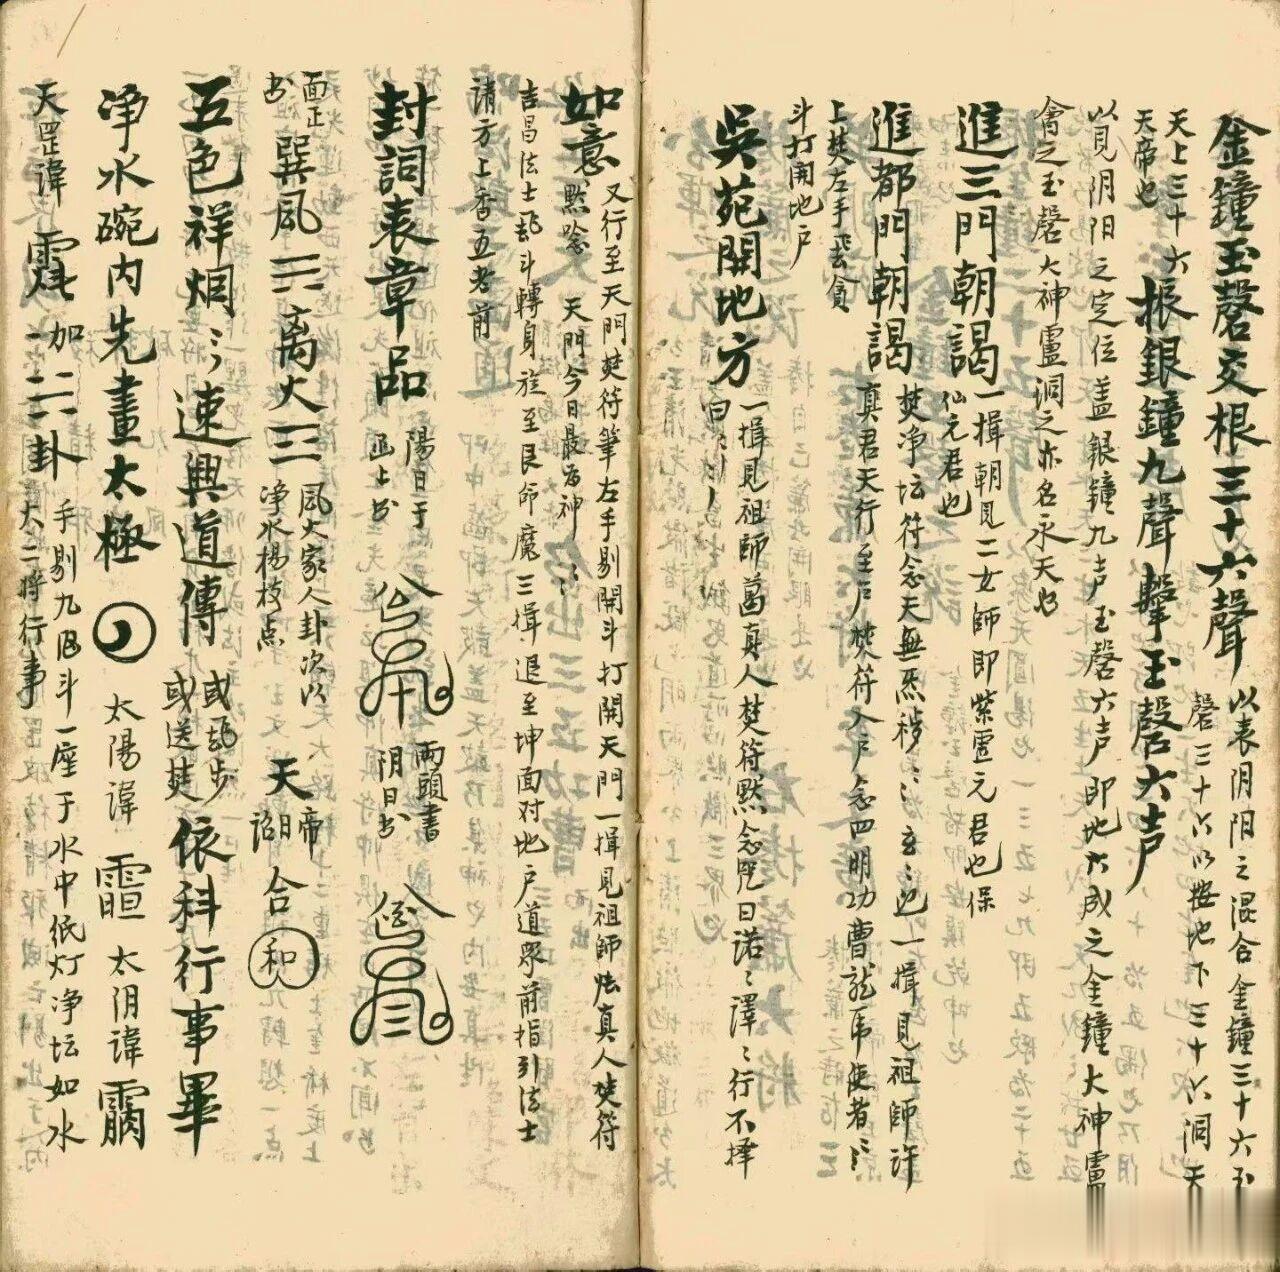 金鐘玉磬交根三十六聲 以表阴阳之混合金鐘三十六玉
磬三十六以按地下三十六洞天
天上三十六
天帝也 振銀鐘九聲擊玉磬六声
以見阴阳之定位盖銀鐘九声玉磬六声即地六成之金鐘大神盧
會之玉磬大神盧洞之亦名永天也
進三門朝謁 一揖朝見二女師即紫虚元君也保
仙元君也
進都門朝謁 焚净坛符念天無炁秽〻玄〻也一揖見祖師许
真君天行至户焚符入户念四明功曹龍虎使者〻
上焚左手
斗打開地户
吳苑開地方 一揖見祖師葛真人焚符默念咒曰諾〻譯〻行不擇
曰
如意 又行至天門焚符筆左手剔開斗打開天門一揖見祖師
真人焚符
默唸 天門今日最為神〻
吉昌法士 斗轉身於至艮命魔三揖退至坤面对地户道眾前指引法士
请方上香五老前
封詞表章品 陽日于
函上书 兩頭書
阴日书
面正
书 巽風☴離火☲ 風火家人卦次以
净水楊枝点 天帝
詔曰 合 和
五色祥烟〻速興道傳 或 步
或送焚 依科行事畢
净水碗内先畫太極 太陽諱 太阴諱
天罡諱 加 卦 手剔九 斗一座于水中纸灯净坛如水
大二將行事